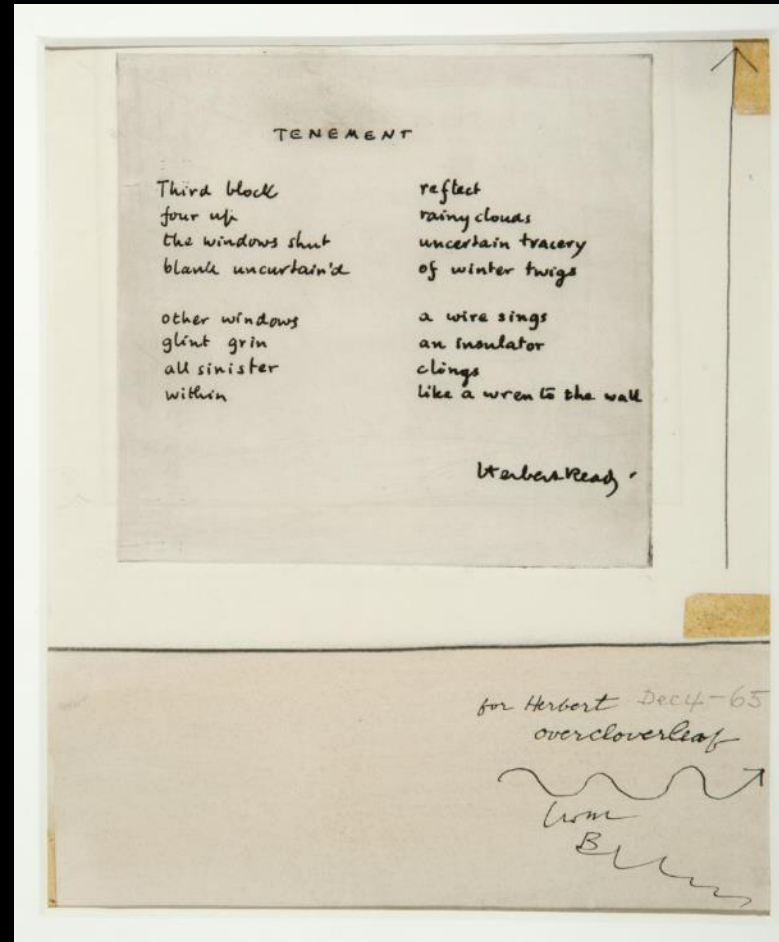 TENEMENT
Third block
four up
the windows shut
blank uncurtain'd
other windows
glint grin
all sinister
within
reflect
rainy clouds
uncertain tracery
of winter twigs
a wire sings
an insulator
clings
like a wren to the wall
Herbert Read
for Herbert Dec 4-65
overcloverleaf
from